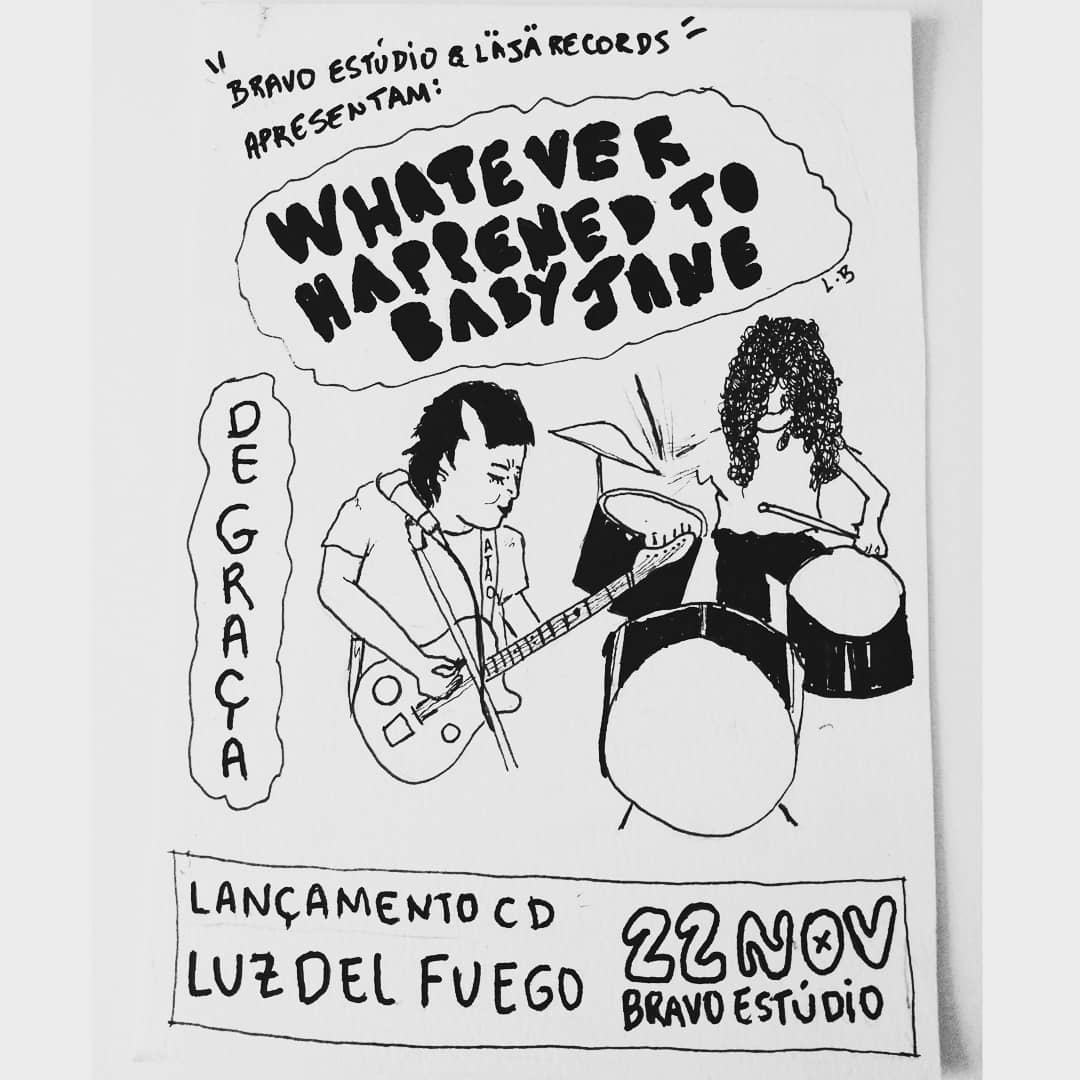 "BRAVO ESTÚDIO & LÄJÄ RECORDS"
APRESENTAM:
WHATEVER
HAPPENED TO
BABY JANE
L.B
DE GRAÇA
ATÃO
LANÇAMENTO CD
LUZ DEL FUEGO
22 NOV
BRAVO ESTÚDIO